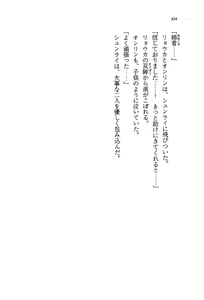 324
「師者……」
リョウカとオンリンは、シュンライに飛びついた。
「信じておりました……! きっと助けにきてくれると……」
リョウカの双眸から涙がこぼれる。
オンリンも、子供のように泣いていた。
「よく頑張った……」
シュンライは、大事な二人を優しく包み込んだ。